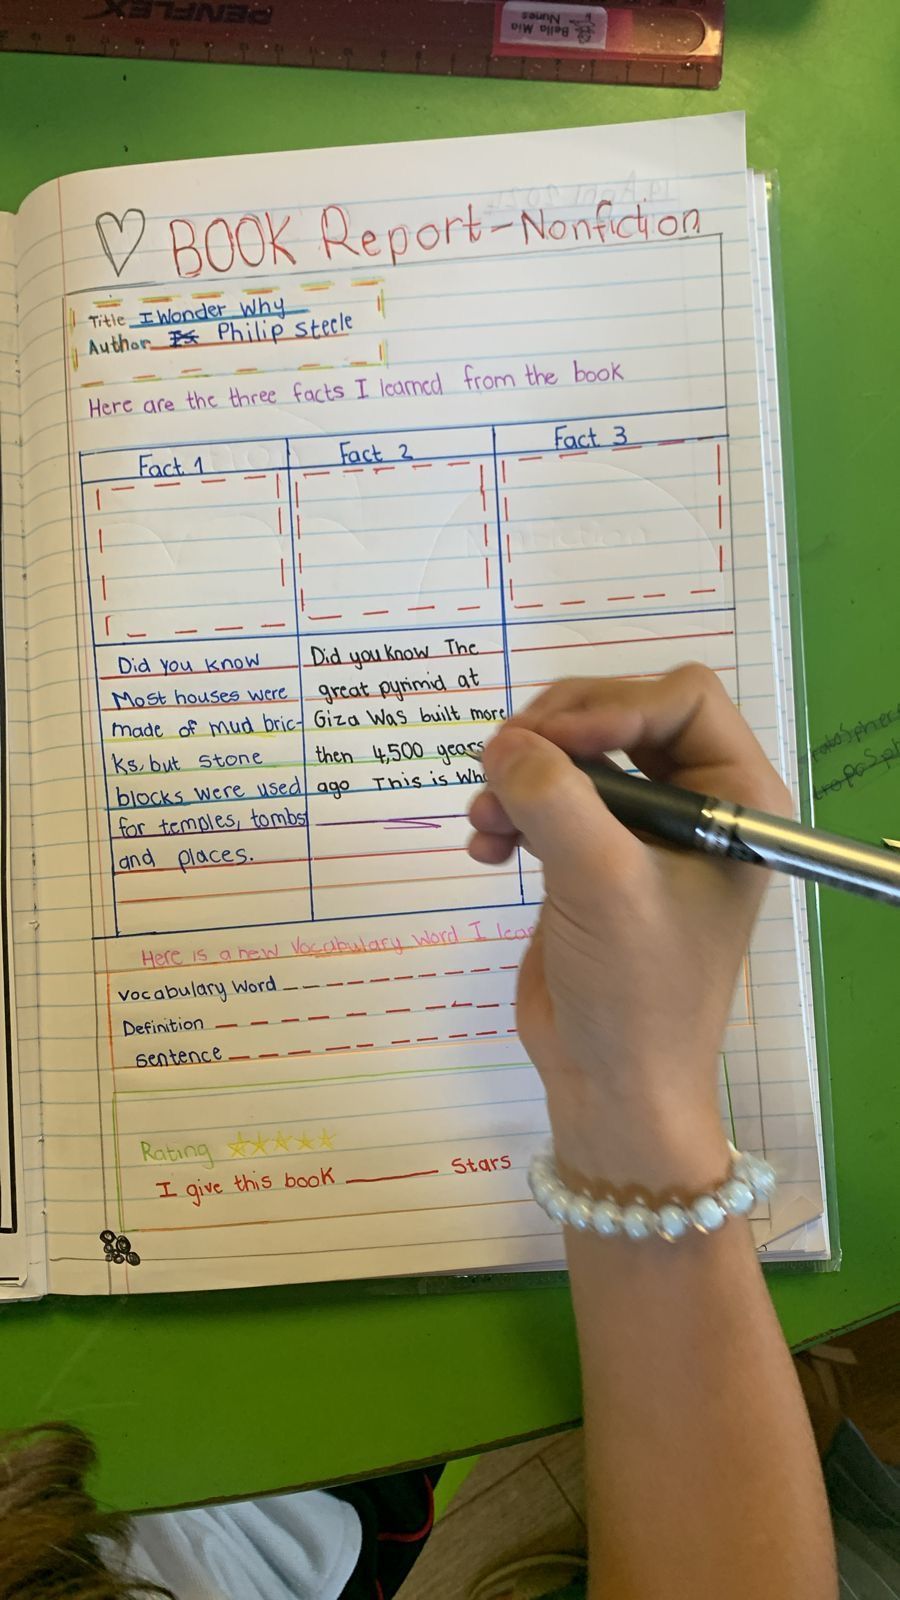 PENFLEX
Bella Mia
Nunes
BOOK Report-Nonfiction
Title I Wonder Why
Author Philip Steele
Here are the three facts I learned from the book
Fact 1
Fact 2
Fact 3
Did you know
Most houses were
made of mud bric-
ks, but stone
blocks were used
for temples, tombs
and places.
Did you know The
great pyrimid at
Giza Was built more
then 4,500 years
ago This is
Here is a new Vocabulary Word I
Vocabulary Word
Definition
sentence
Rating
I give this book ______ Stars